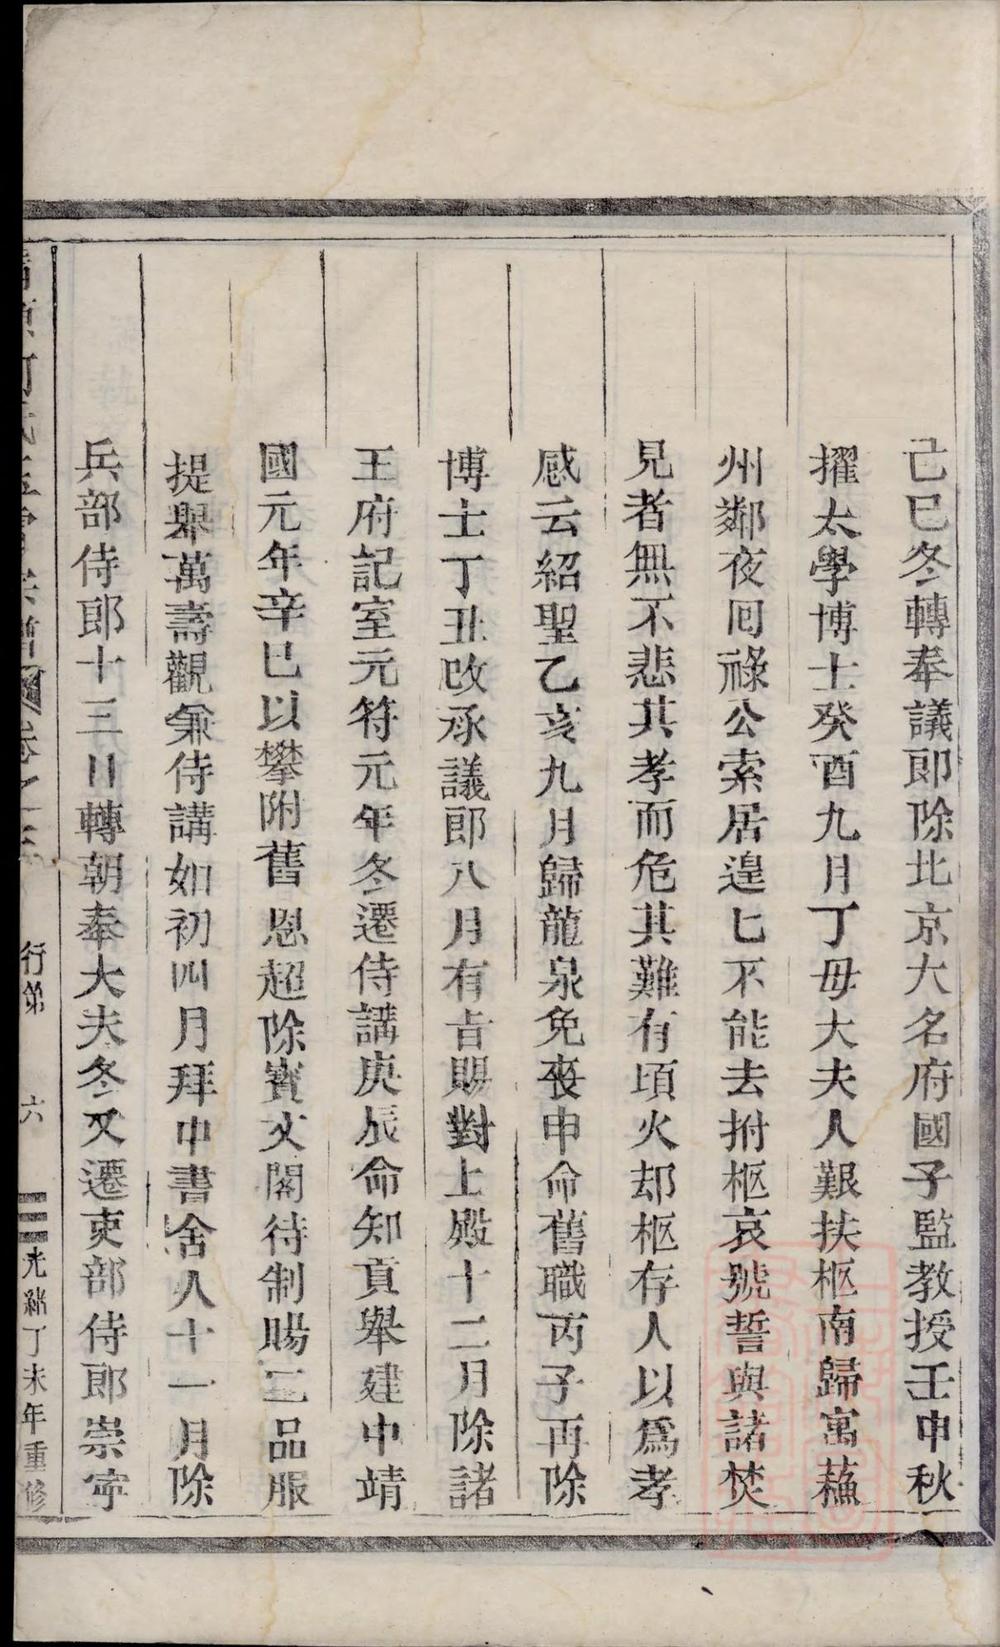 己巳冬轉奉議郎除北京大名府國子監教授壬申秋
擢太學博士癸酉九月丁母大夫人艱扶柩南歸寓蘓
州鄰夜囘祿公索居遑匕不能去拊柩哀號誓與諸焚
見者無不悲其孝而危其難有頃火却柩存人以爲孝
感云紹聖乙亥九月歸龍泉免喪申命舊職丙子再除
博士丁丑改承議郎八月有㫖賜對上殿十二月除諸
王府記室元符元年冬遷侍講庚辰命知貢舉建中靖
國元年辛巳以攀附舊恩超除寳文閣待制賜三品服
提舉萬壽觀兼侍講如初四月拜中書舍人十一月除
兵部侍郎十三日轉朝奉大夫冬又遷吏部侍郎崇寧
行第 六 光緒丁未年重修